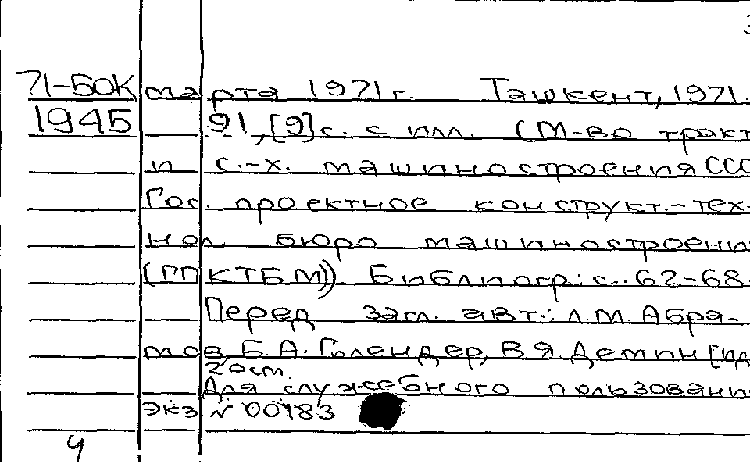 71-БОК марта 1971 г. Ташкент, 1971.
1945 91, [9] с. с илл. (М-во тракт
и с.-х. машиностроения ССС
Гос. проектное конструкт.-тех-
нол. бюро машиностроени
(ГПКТБМ)). Библиогр.: с. 62-68.
Перед загл. авт.: Л.М. Абра-
мов, Б.А. Голендер, В.Я. Демин [и др
Для служебного пользовани
экз N 00183
4